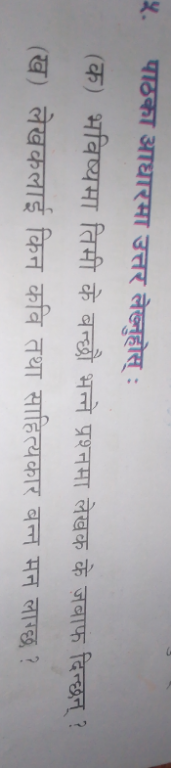 ५. पाठका आधारमा उत्तर लेख्नुहोस् :
(क) भविष्यमा तिमी के बन्छौ भन्ने प्रश्नमा लेखक के जवाफ दिन्छन् ?
(ख) लेखकलाई किन कवि तथा साहित्यकार बन्न मन लाग्छ ?